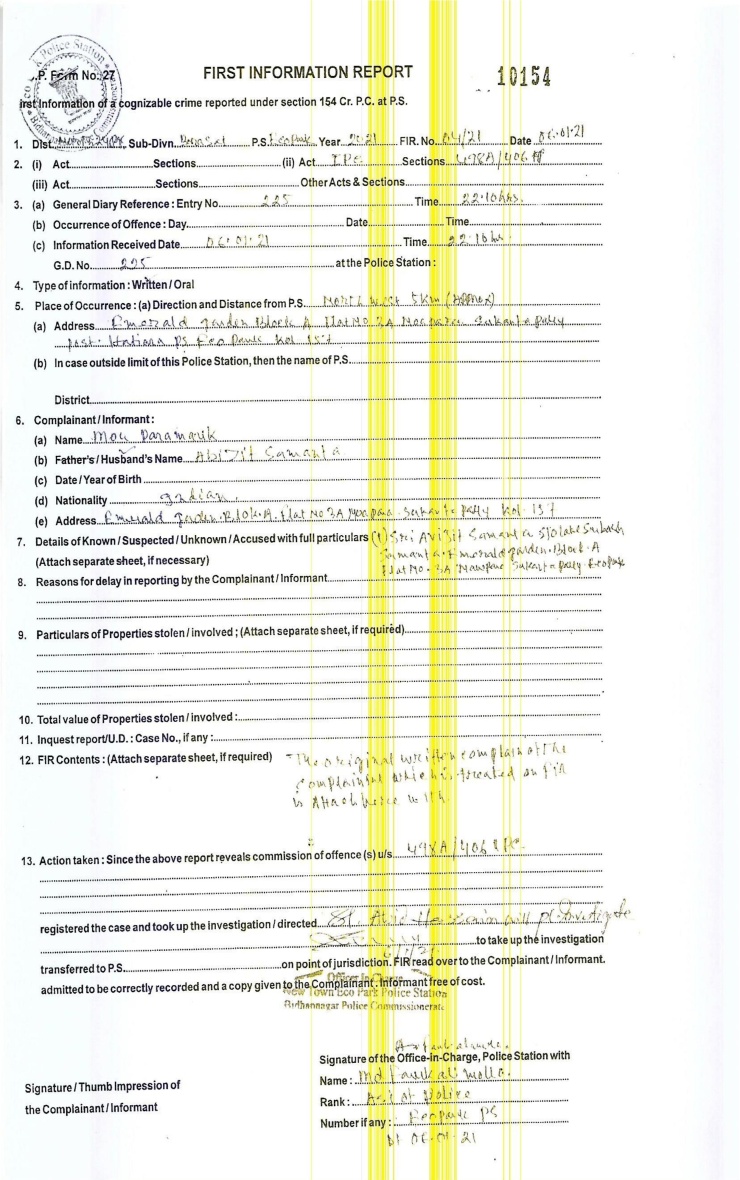 Police Station
.P. Form No. 27
FIRST INFORMATION REPORT
10154
irst Information of a cognizable crime reported under section 154 Cr. P.C. at P.S.
1. Dist. Sub-Divn. Barasat P.S. Ecopark Year 2021 FIR. No. 04/21 Date 06.01.21
2. (i) Act Sections (ii) Act IPC Sections 498A/406
(iii) Act Sections Other Acts & Sections
3. (a) General Diary Reference : Entry No. 225 Time 22.10 hrs.
(b) Occurrence of Offence : Day Date Time
(c) Information Received Date 06.01.21 Time 22.10 hrs.
G.D. No. 225 at the Police Station :
4. Type of information : Written / Oral
5. Place of Occurrence : (a) Direction and Distance from P.S. North West 5km (Approx)
(a) Address Emerald garden Block A Flat No 3A Noapara Sukanta pally
post. Hatiara PS Eco Park Kol 157
(b) In case outside limit of this Police Station, then the name of P.S.
District
6. Complainant / Informant :
(a) Name Mou Paramanik
(b) Father's / Husband's Name Abijit Samanta
(c) Date / Year of Birth
(d) Nationality Indian
(e) Address Emerald garden. Block. A. Flat No 3A Noapara. Sukanta pally Kol 157
7. Details of Known / Suspected / Unknown / Accused with full particulars (1) Sri Avijit Samanta S/o Late Subash
Samanta of Emerald garden. Block. A
(Attach separate sheet, if necessary) Flat No. 3A Sukanta pally. Ecopark
8. Reasons for delay in reporting by the Complainant / Informant
9. Particulars of Properties stolen / involved ; (Attach separate sheet, if required)
10. Total value of Properties stolen / involved :
11. Inquest report/U.D. : Case No., if any :
12. FIR Contents : (Attach separate sheet, if required) The original written complain of the
complainant which is treated as FIR
is Attach herewith.
13. Action taken : Since the above report reveals commission of offence (s) u/s 498A/406 IPC
registered the case and took up the investigation / directed will pl. Investigate
to take up the investigation
transferred to P.S. on point of jurisdiction. FIR read over to the Complainant / Informant.
admitted to be correctly recorded and a copy given to the Complainant . Informant free of cost.
Officer In-Charge
New Town Eco Park Police Station
Bidhannagar Police Commissionerate
Signature of the Office-in-Charge, Police Station with
Signature / Thumb Impression of
the Complainant / Informant
Name : Md
Rank : ASI of Police
Number if any : Ecopark PS
Dt 06.01.21